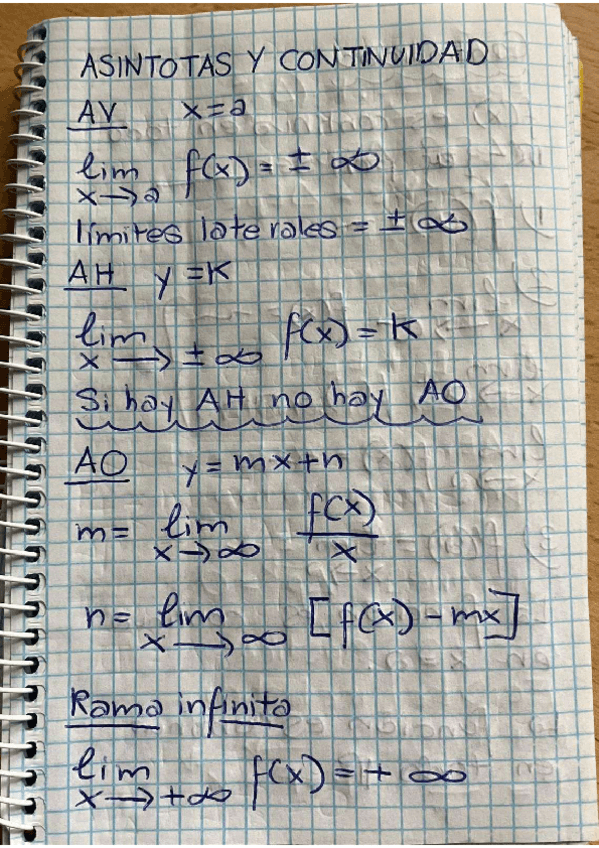 ASINTOTAS Y CONTINUIDAD
AV x=a
lim f(x) = ± ∞
x→a
límites laterales = ± ∞
AH y = K
lim f(x) = k
x → ± ∞
Si hay AH no hay AO
AO y = mx+n
m = lim f(x)/x
x→∞
n = lim [f(x) - mx]
x → ∞
Rama infinita
lim f(x) = + ∞
x→+∞